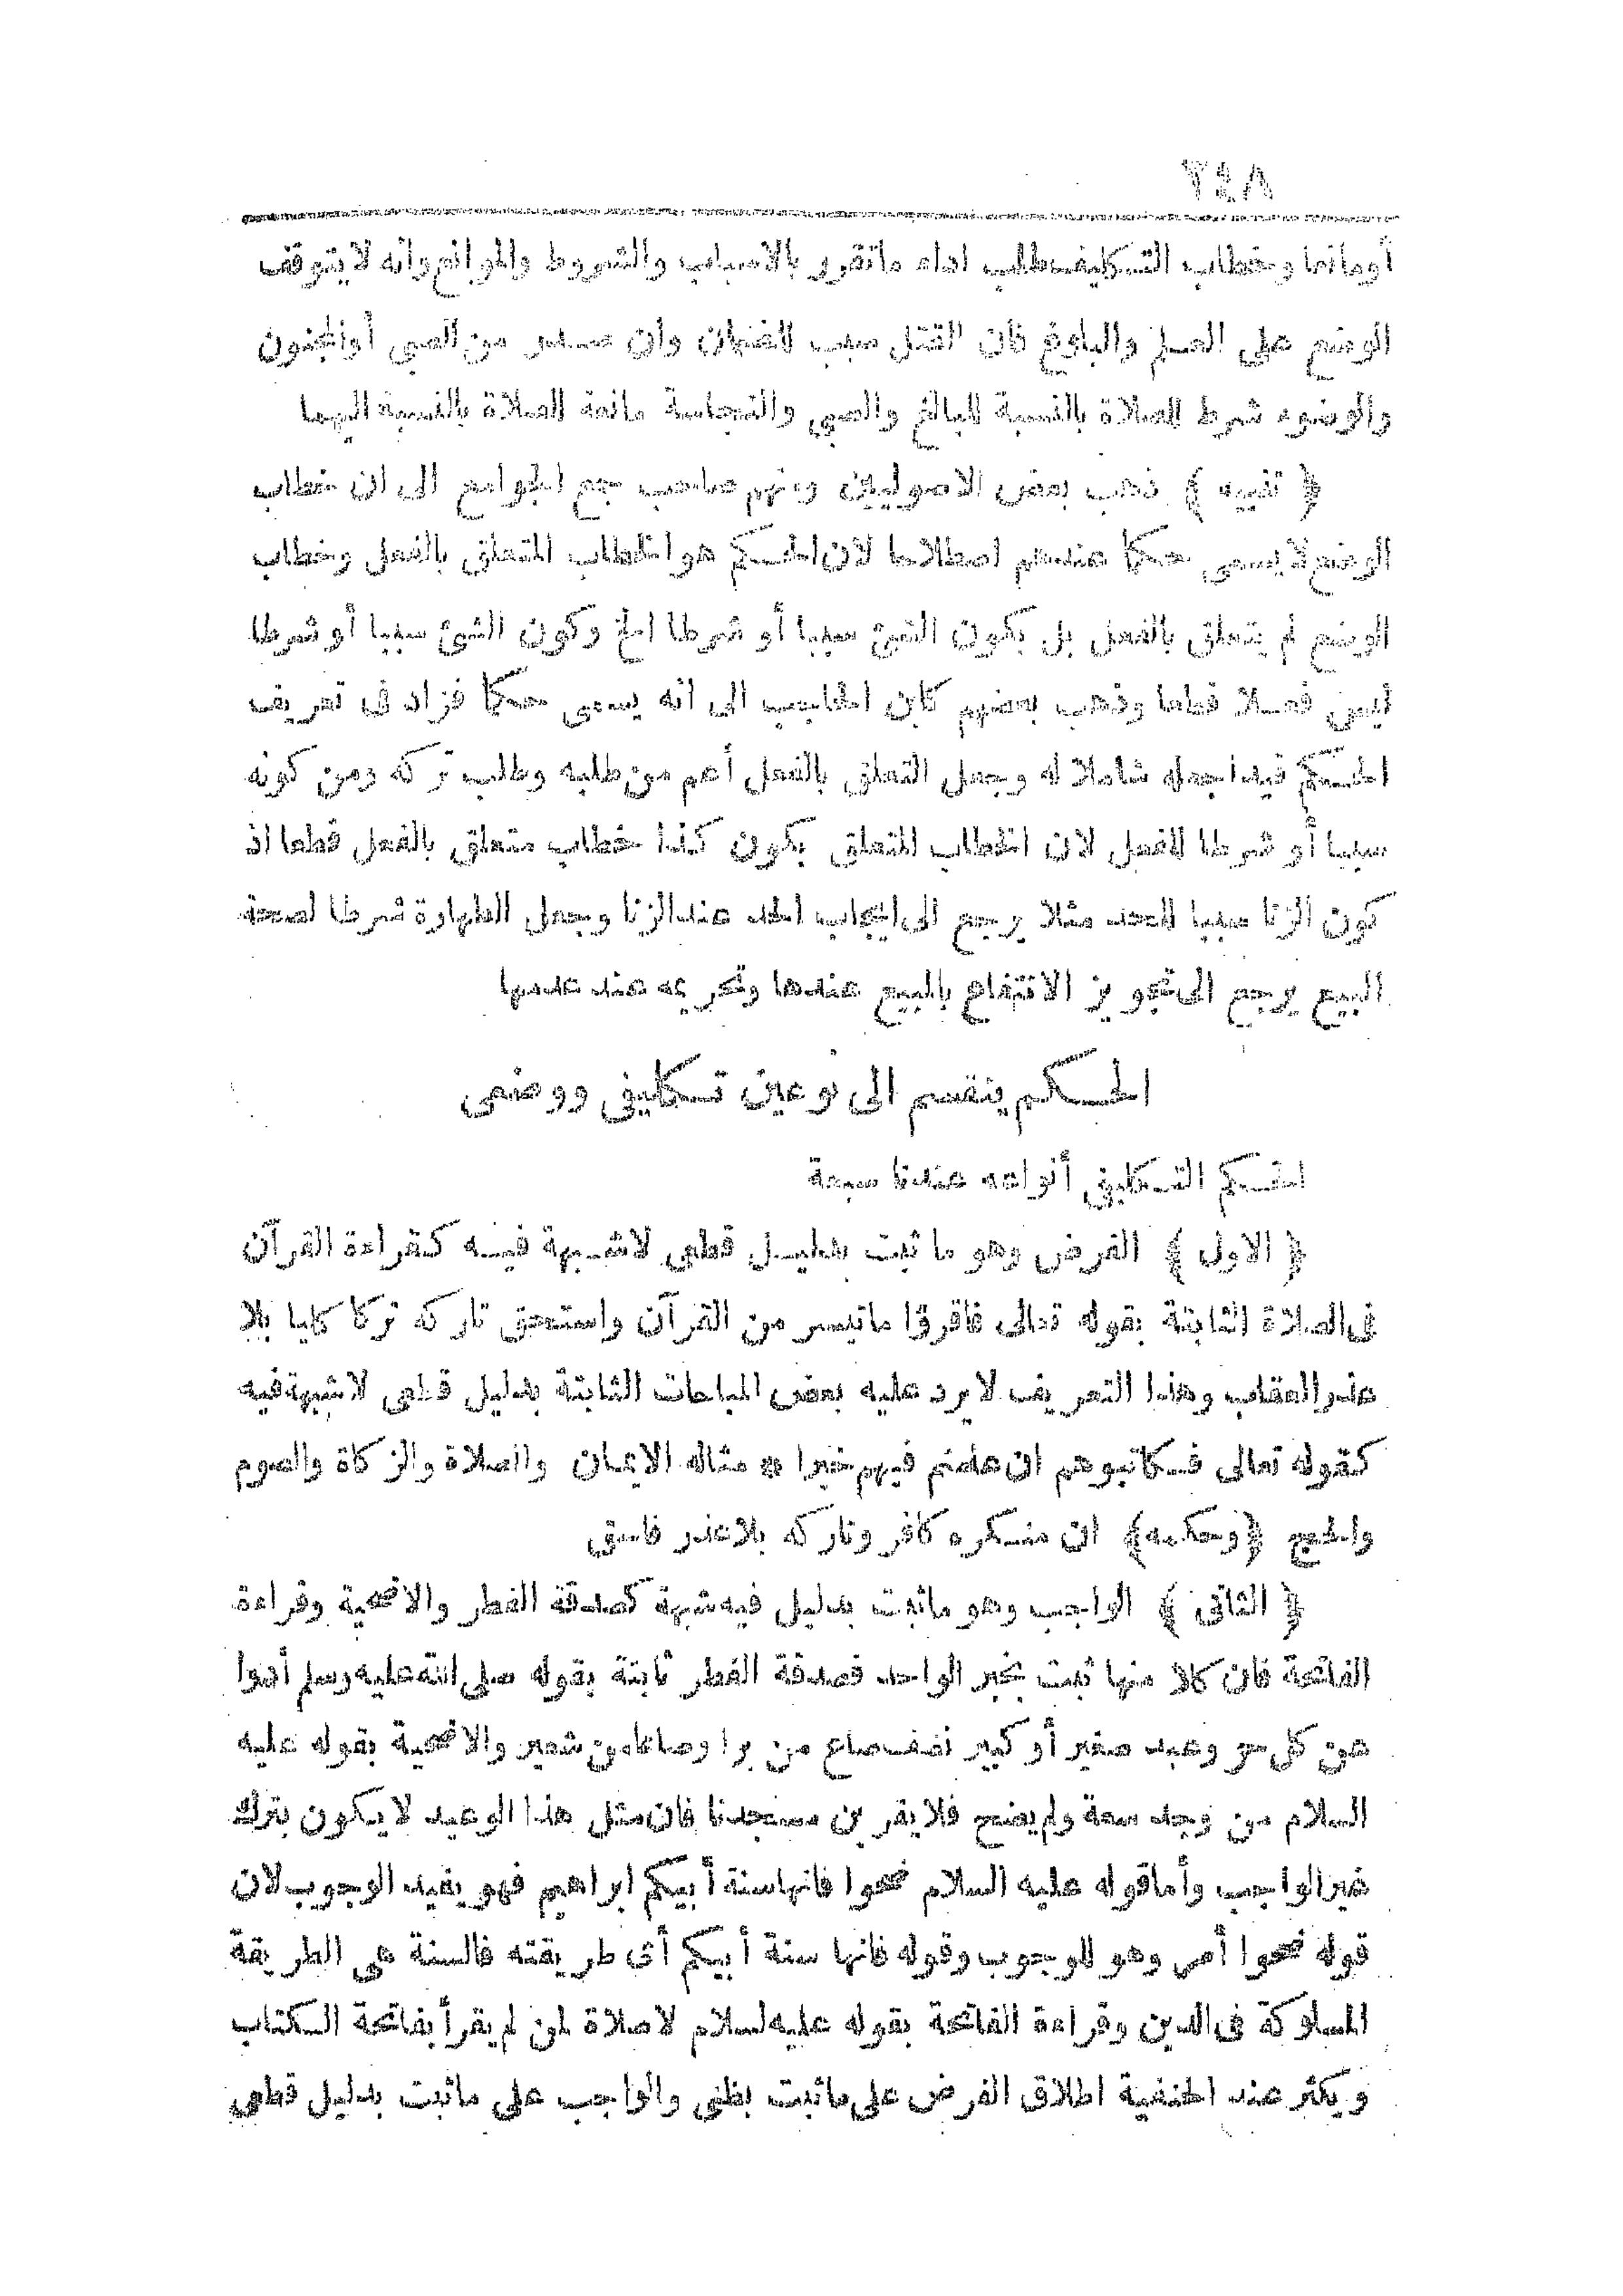 ٢٤٨
أو مانعا وخطاب التكليف طلب اداء ما تقرر بالاسباب والشروط والموانع وانه لا يتوقف
الوضع على العلم والبلوغ فان القتل سبب للضمان وان صدر من الصبي أو المجنون
والوضوء شرط للصلاة بالنسبة للبالغ والصبي والنجاسة مانعة للصلاة بالنسبة اليهما
﴿ تنبيه ﴾ ذهب بعض الاصوليين ومنهم صاحب جمع الجوامع الى ان خطاب
الوضع لا يسمى حكما عندهم اصطلاحا لان الحكم هو الخطاب المتعلق بالفعل وخطاب
الوضع لم يتعلق بالفعل بل بكون الشئ سببا أو شرطا الخ وكون الشئ سببا أو شرطا
ليس فعلا قطعا وذهب بعضهم كابن الحاجب الى انه يسمى حكما فزاد فى تعريف
الحكم قيدا جعله شاملا له وجعل التعلق بالفعل أعم من طلبه وطلب تركه ومن كونه
سببا أو شرطا للفعل لان الخطاب المتعلق بكون كذا خطاب متعلق بالفعل قطعا اذ
كون الزنا سببا للحد مثلا يرجع الى ايجاب الحد عند الزنا وجعل الطهارة شرطا لصحة
البيع يرجع الى تجويز الانتفاع بالمبيع عندها وتحريمه عند عدمها
الحكم ينقسم الى نوعين تكليفى ووضعى
الحكم التكليفى أنواعه عندنا سبعة
﴿ الاول ﴾ الفرض وهو ما ثبت بدليل قطعى لا شبهة فيه كقراءة القرآن
فى الصلاة الثابتة بقوله تعالى فاقرؤا ما تيسر من القرآن واستحق تاركه تركا كليا بلا
عذر العقاب وهذا التعريف لا يرد عليه بعض المباحات الثابتة بدليل قطعى لا شبهة فيه
كقوله تعالى فكاتبوهم ان علمتم فيهم خيرا * مثاله الايمان والصلاة والزكاة والصوم
والحج ﴿وحكمه﴾ ان منكره كافر وتاركه بلا عذر فاسق
﴿ الثانى ﴾ الواجب وهو ما ثبت بدليل فيه شبهة كصدقة الفطر والاضحية وقراءة
الفاتحة فان كلا منها ثبت بخبر الواحد فصدقة الفطر ثابتة بقوله صلى الله عليه وسلم أدوا
عن كل حر وعبد صغير أو كبير نصف صاع من برا وصاعا من شعير والاضحية بقوله عليه
السلام من وجد سعة ولم يضح فلا يقربن مسجدنا فان مثل هذا الوعيد لا يكون بترك
غير الواجب وأما قوله عليه السلام ضحوا فانها سنة أبيكم ابراهيم فهو يفيد الوجوب لان
قوله ضحوا أمر وهو للوجوب وقوله فانها سنة أبيكم أى طريقته فالسنة هى الطريقة
المسلوكة فى الدين وقراءة الفاتحة بقوله عليه لسلام لا صلاة لمن لم يقرأ بفاتحة الكتاب
ويكثر عند الحنفية اطلاق الفرض على ما ثبت بظنى والواجب على ما ثبت بدليل قطعى